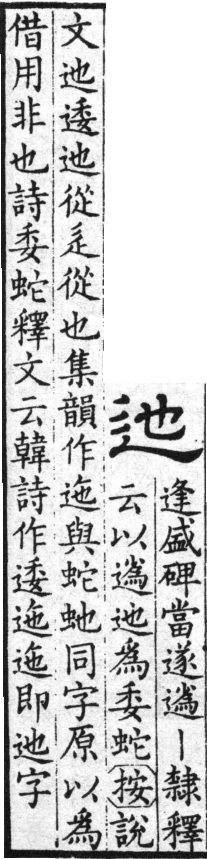 迆
逢盛碑當遂丨隸釋
云以迆爲委蛇按說
文迆逶迆從辵從也集韻作迤與蛇虵同字原以爲
借用非也詩委蛇釋文云韓詩作逶迤迤即迆字